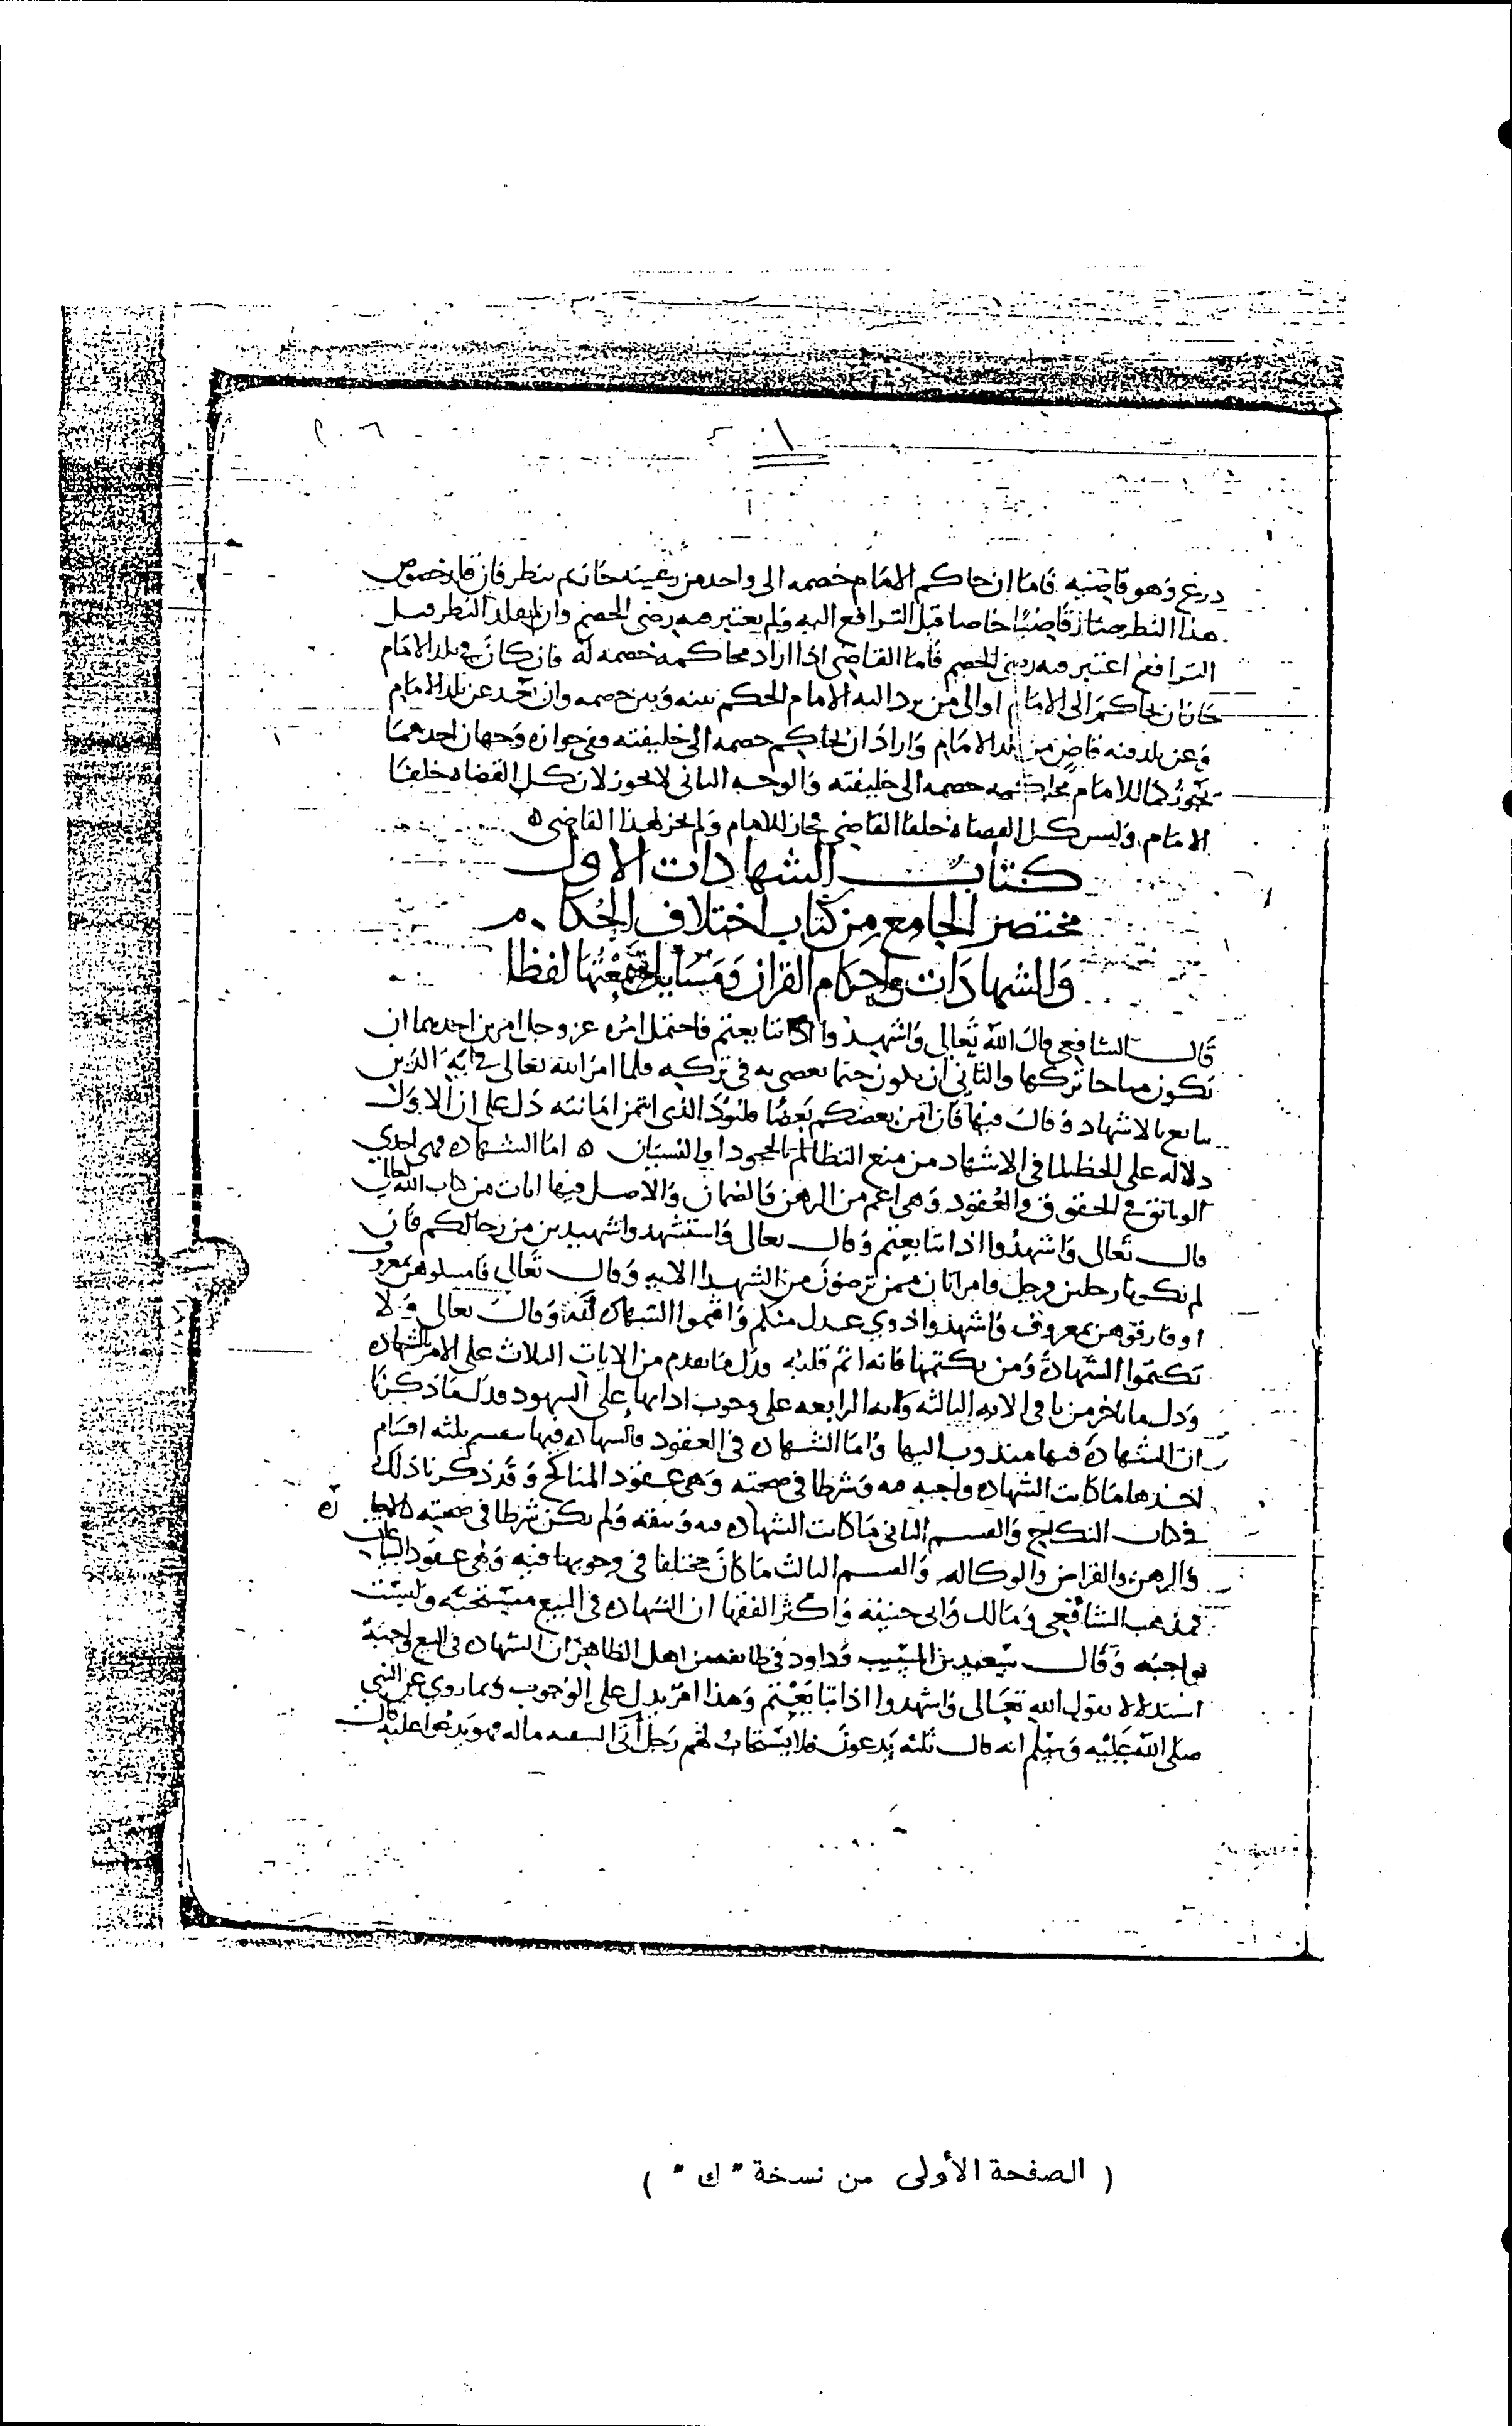 ٢٠٦
درع وهو قاضيه فاما ان حاكم الامام خصمه الى واحد من رعيته جاز ثم ينظر فان قلده خصوص
هذا النظر صار قاضيا خاصا قبل الترافع اليه ولم يعتبر فيه رضى الخصم وان لم يقلد النظر قبل
الترافع اعتبر فيه رضى الخصم فاما القاضي اذا اراد محاكمة خصمه له فان كان في بلد الامام
جاز ان يحاكم الى الامام او الى من يرد اليه الامام الحكم بينه وبين خصمه وان بعد عن بلد الامام
وعن بلد فيه قاض من الامام واراد ان يحاكم خصمه الى خليفته ففي جوازه وجهان احدهما
يجوز كما للامام محاكمة خصمه الى خليفته والوجه الثاني لا يجوز لان كل القضاه خلفا
الامام وليس كل القضاه خلفا القاضي فجاز للامام ولم يجز لهذا القاضي ه
كتاب الشهادات الاول
مختصر الجامع من كتاب اختلاف الحكام
والشهادات واحكام القران ومسايل شتى سمعتها لفظا
قال الشافعي قال الله تعالى واشهدوا اذا تبايعتم فاحتمل امره عز وجل امرين احدهما ان
تكون مباحا تركها والثاني ان يكون حتما يعصى به في تركه فلما امر الله تعالى في اية الدين
بالاشهاد وقال فيها فان امن بعضكم بعضا فليؤد الذي ائتمن امانته دل على ان الاولى
دلاله على الحظ لما في الاشهاد من منع التظالم بالجحود او النسيان ه اما الشهاده فهي احدي
الوثائق في الحقوق والعقود وهي اعم من الرهن والضمان والاصل فيها ايات من كتاب الله تعالى
قال تعالى واشهدوا اذا تبايعتم وقال تعالى واستشهدوا شهيدين من رجالكم فان
لم يكونا رجلين فرجل وامراتان ممن ترضون من الشهدا الايه وقال تعالى فامسكوهن بمعروف
او فارقوهن بمعروف واشهدوا ذوي عدل منكم واقيموا الشهاده لله وقال تعالى ولا
تكتموا الشهادة ومن يكتمها فانه اثم قلبه فدل ما تقدم من الايات الثلاث على الامر بالشهاده
ودل ما تاخر من باقي الايه الثالثه والايه الرابعه على وجوب ادايها على الشهود فدل ما ذكرنا
ان الشهادة فيها مندوب اليها واما الشهاده في العقود فالشهاده فيها تنقسم ثلثه اقسام
احدها ما كانت الشهاده واجبه فيه وشرطا في صحته وهي عقود المناكح وقد ذكرنا ذلك
في كتاب النكاح والقسم الثاني ما كانت الشهاده فيه وثيقه ولم يكن شرطا في صحته كالاجارة
والرهن والقراض والوكاله والقسم الثالث ما كان مختلفا في وجوبها فيه وهي عقود البياعات
فمذهب الشافعي ومالك وابي حنيفه واكثر الفقها ان الشهاده في البيع مستحبه وليست
بواجبه وقال سعيد بن المسيب وداود في طايفه من اهل الظاهر ان الشهاده في البيع واجبة
استدلالا بقول الله تعالى واشهدوا اذا تبايعتم وهذا امر يدل على الوجوب وبما روي عن النبي
صلى الله عليه وسلم انه قال ثلثه يدعون فلا يستجاب لهم رجل اتى السفيه ماله فهو يدعوا عليه قال
( الصفحة الأولى من نسخة " ك " )